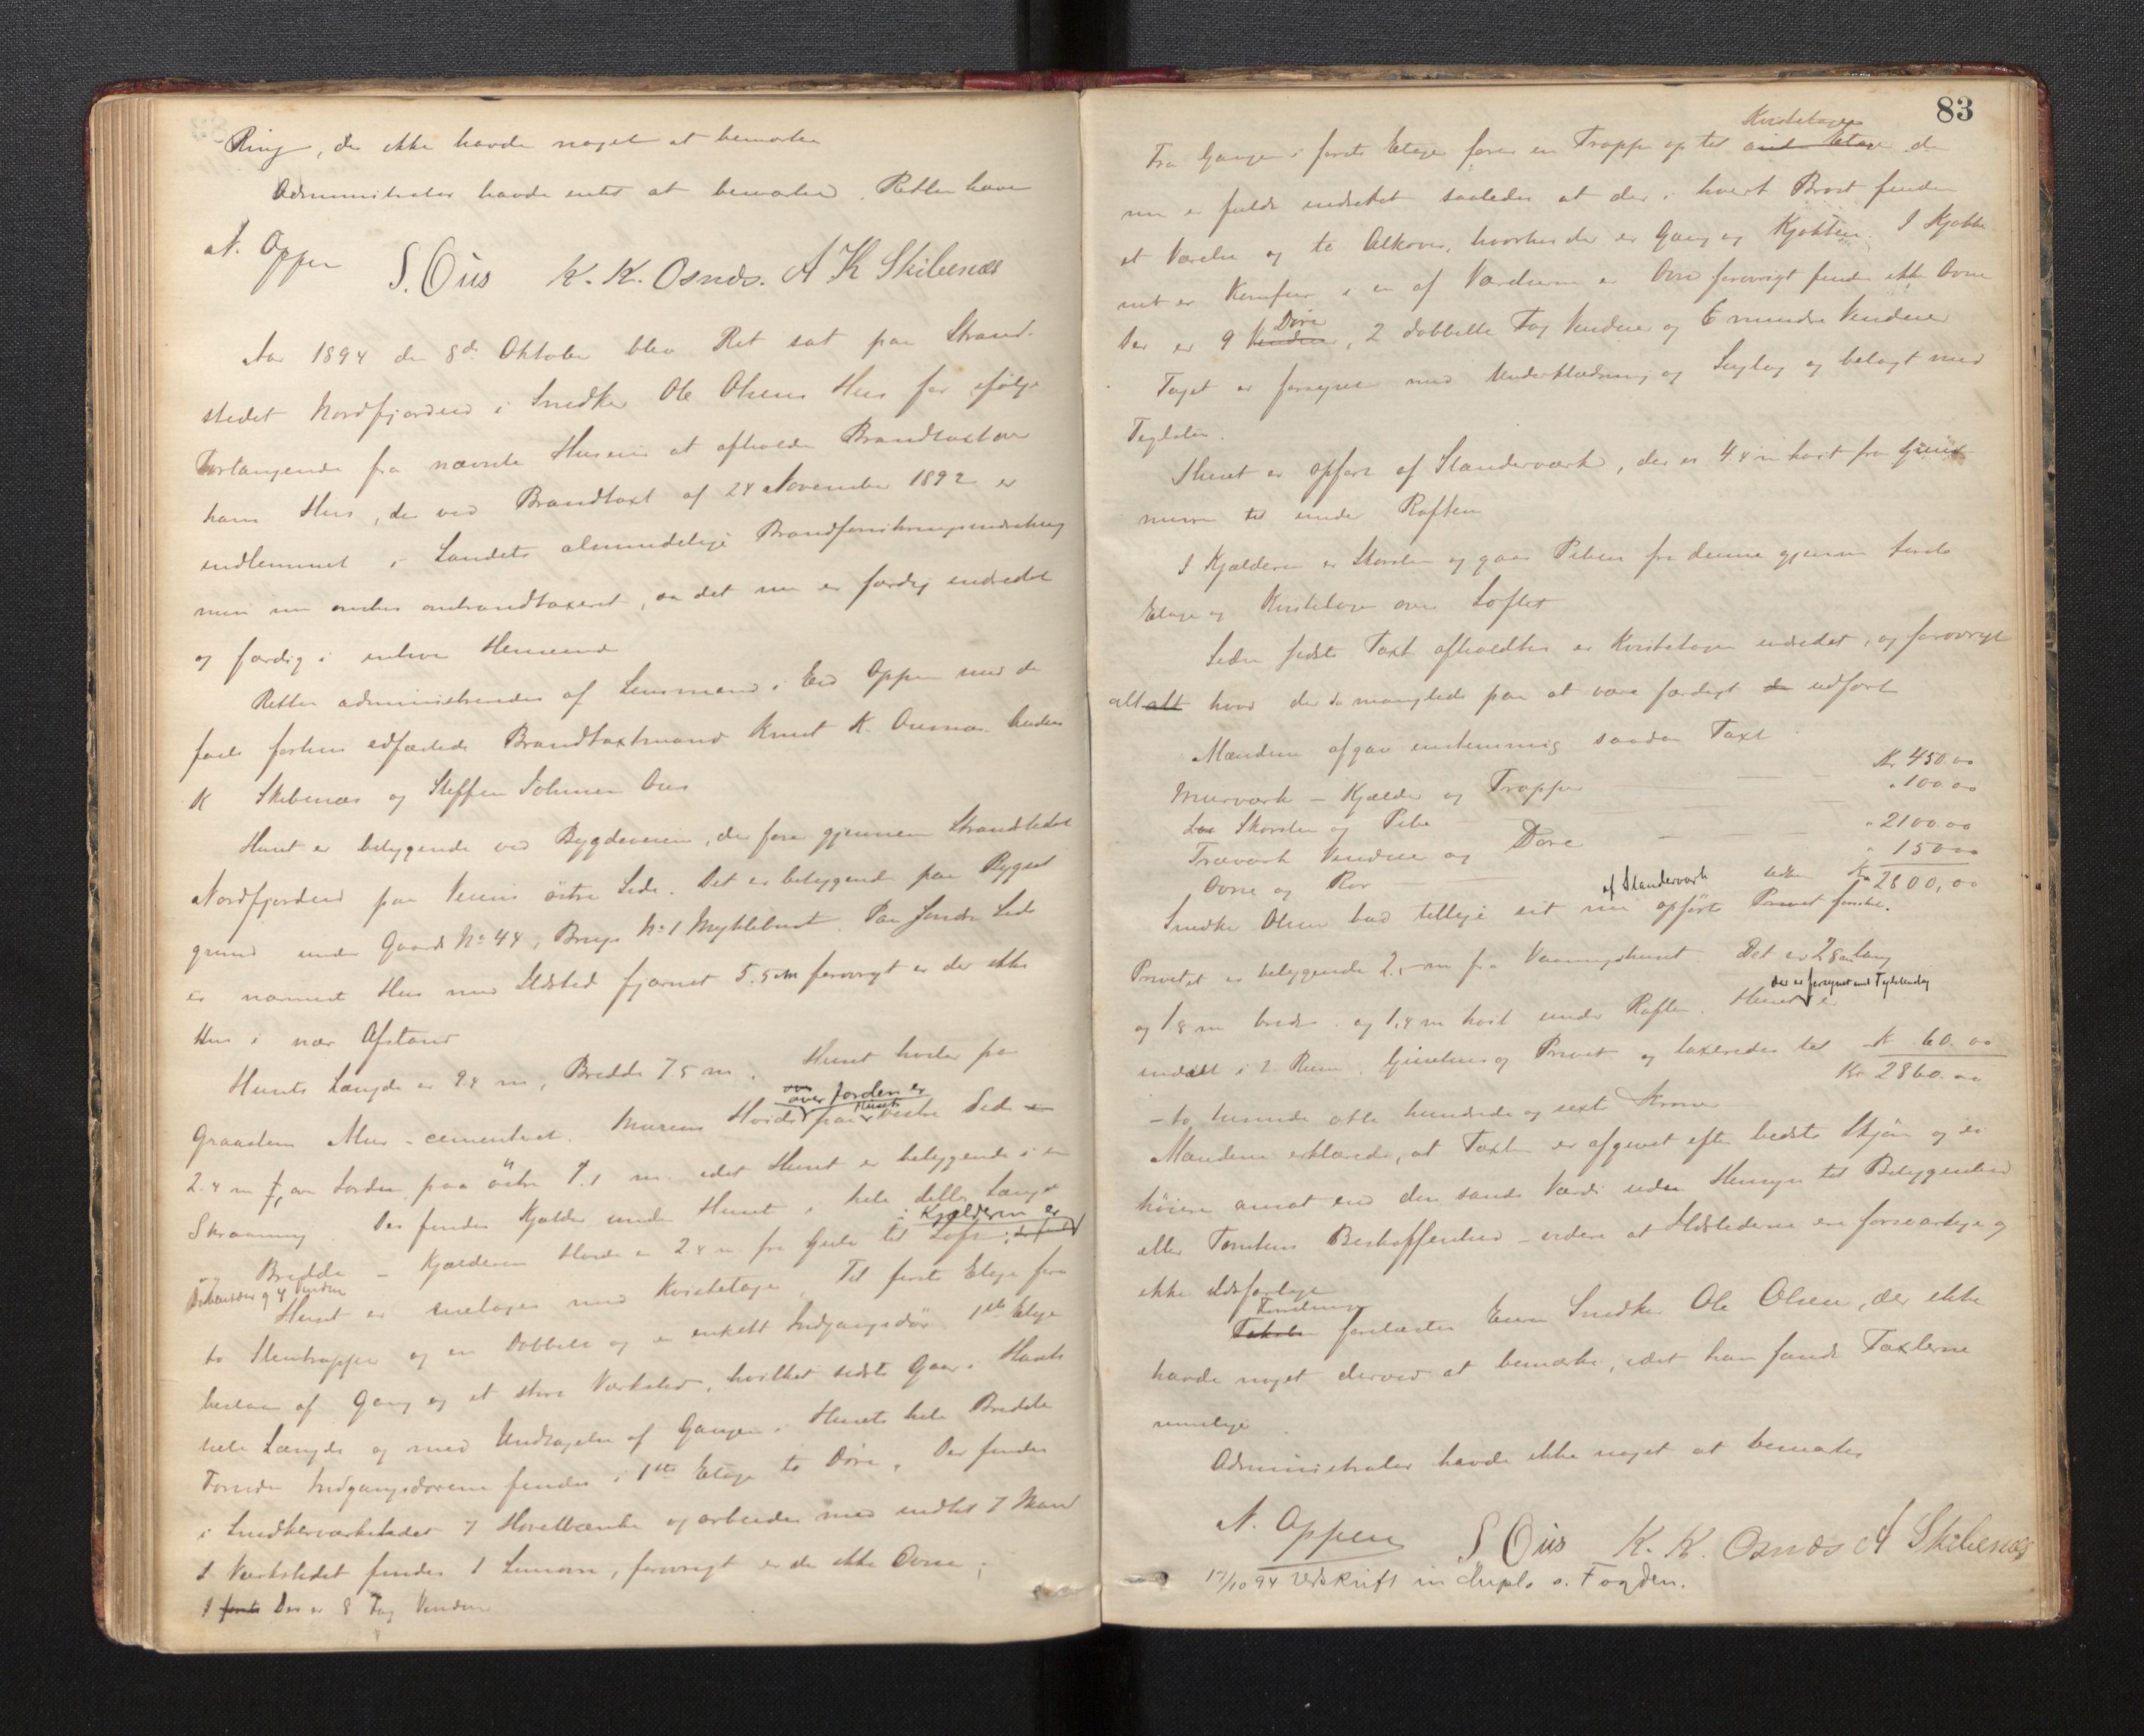 Ring, der ikke havde noget at bemærke
Administrator havde intet at bemærke. Retten hævet
N. Oppen S. Ous K. K. Osnæs. A K Skibenæs
Aar 1894 den 8de Oktober blev Ret sat paa Strand-
stedet Nordfjordeid i Snedker Ole Olsens Hus for ifølge
Forlangende fra nævnte Huseier at afholde Brandtaxt over
hans Hus, der ved Brandtaxt af 24 November 1892 er
indlemmet i Landets almindelige Brandforsikringsindretning
men nu ønskes ombrandtaxeret, da det nu er færdig indredet
og færdig i enhver Henseende
Retten administreredes af Lensmand i Eid Oppen med de
faste forhen edfæstede Brandtaxtmænd Knut K. Osnæs. Anders
K Skibenæs og Steffen Ous
Huset er beliggende ved Bygdeveien, der fører gjennem Strandstedet
Nordfjordeid paa Veiens östre Side. Det er beliggende paa Bygsel
grund under Gaards No 44, Brugs No 1 Myklebust. Paa Søndre Side
er nærmest Hus med Ildsted fjernet 5.5 m forøvrigt er der ikke
Hus i nær Afstand
Husets Længde er 9.4 m, Bredde 7.5 m. Huset hviler paa
over Jorden er
Graastens Mur - cementeret. Murens Høide paa Husets vestre Side er
2.4 m over Jorden paa östre 1.1 m. idet Huset er beliggende i en
Skraaning. Der findes Kjælder under Huset i hele dettes Længde
i Kjælderen er
og Bredde - Kjælderens Høide er 2.4 m. fra Gulv til Loft
og 4 Vinduer
Huset er enetages med Kvistetage. Til første Etage fører
to Stentrapper og en Dobbelt og en enkelt Indgangsdør. 1ste Etage
bestaar af Gang og et stort Værksted, hvilket sidste gaar i Husets
hele Længde og med Undtagelse af Gangen i Husets hele Bredde
Foruden Indgangsdørene findes i 1ste Etage to Døre. Der findes
i Snedkerværkstedet 7 Høvelbænke og arbeides med indtil 7 Mand
I Værkstedet findes 1 Limovn, forøvrigt er der ikke Ovne;
I første Der er 8 Fag Vinduer
83
Kvistetagen
Fra Gangen i første Etage fører en Trappe op til anden Etage der
nu er fuldt indredet saaledes at der i hvert Brøst findes
et Værelse og to Alkover, hvorhos der er Gang og Kjøkken. I Kjøkke
net er Komfur i en af Værelserne er Ovn forøvrigt findes ikke Ovne
Døre
Der er 9 Vinduer, 2 dobbelte Fag Vinduer og 6 mindre Vinduer
Taget er forsynet med Underklædning og Sutag og belagt med
Teglsten.
Huset er opført af Stenderværk, der er 4.4 m høit fra Grund
muren til under Raften
I Kjælderen er Skorsten og gaar Piben fra denne gjennem første
Etage og Kvistetage over Loftet
Siden sidste Taxt afholdtes er Kvistetagen indredet, og forøvrigt
alt alt hvad der da manglede paa at være færdigt udført
Mændene afgav enstemmig saadan Taxt
Murværk - Kjælder og Trapper Kr 450.00
Skorsten og Pibe " 100.00
Træværk Vinduer og Døre " 2100.00
Ovne og Rør " 150.00
Kr 2800,00
af Stenderværk
Snedker Olsen bad tillige sit nu opførte Privet
Privetet er beliggende 2. m fra Vaaningshuset. Det er 2.8 m lang
der er forsynet med Teglstenstag
og 1.8 m bred. og 1.4 m høit under Raften. Huset er
inddelt i 2 Rum. og Privet og taxeredes til Kr 60.00
Kr 2860.00
- to tusinde otte hundrede og sexti Kroner
Mændene erklærede, at Taxten er afgivet efter bedste Skjøn og ei
høiere ansat end den sande Værdi uden Hensyn til Beliggenhed
eller Tomtens Beskaffenhed - videre at Ildstederne ere forsvarlige og
ikke ildsfarlige
Forretningen
Taksten forelæstes Eieren Snedker Ole Olsen, der ikke
havde noget derved at bemærke, idet han fandt Taxterne
rimelige
Administrator havde ikke noget at bemærke
N. Oppen S Ous K. K. Osnæs A Skibenæs
17/10 94 Udskrift in duplo s. Fogden.